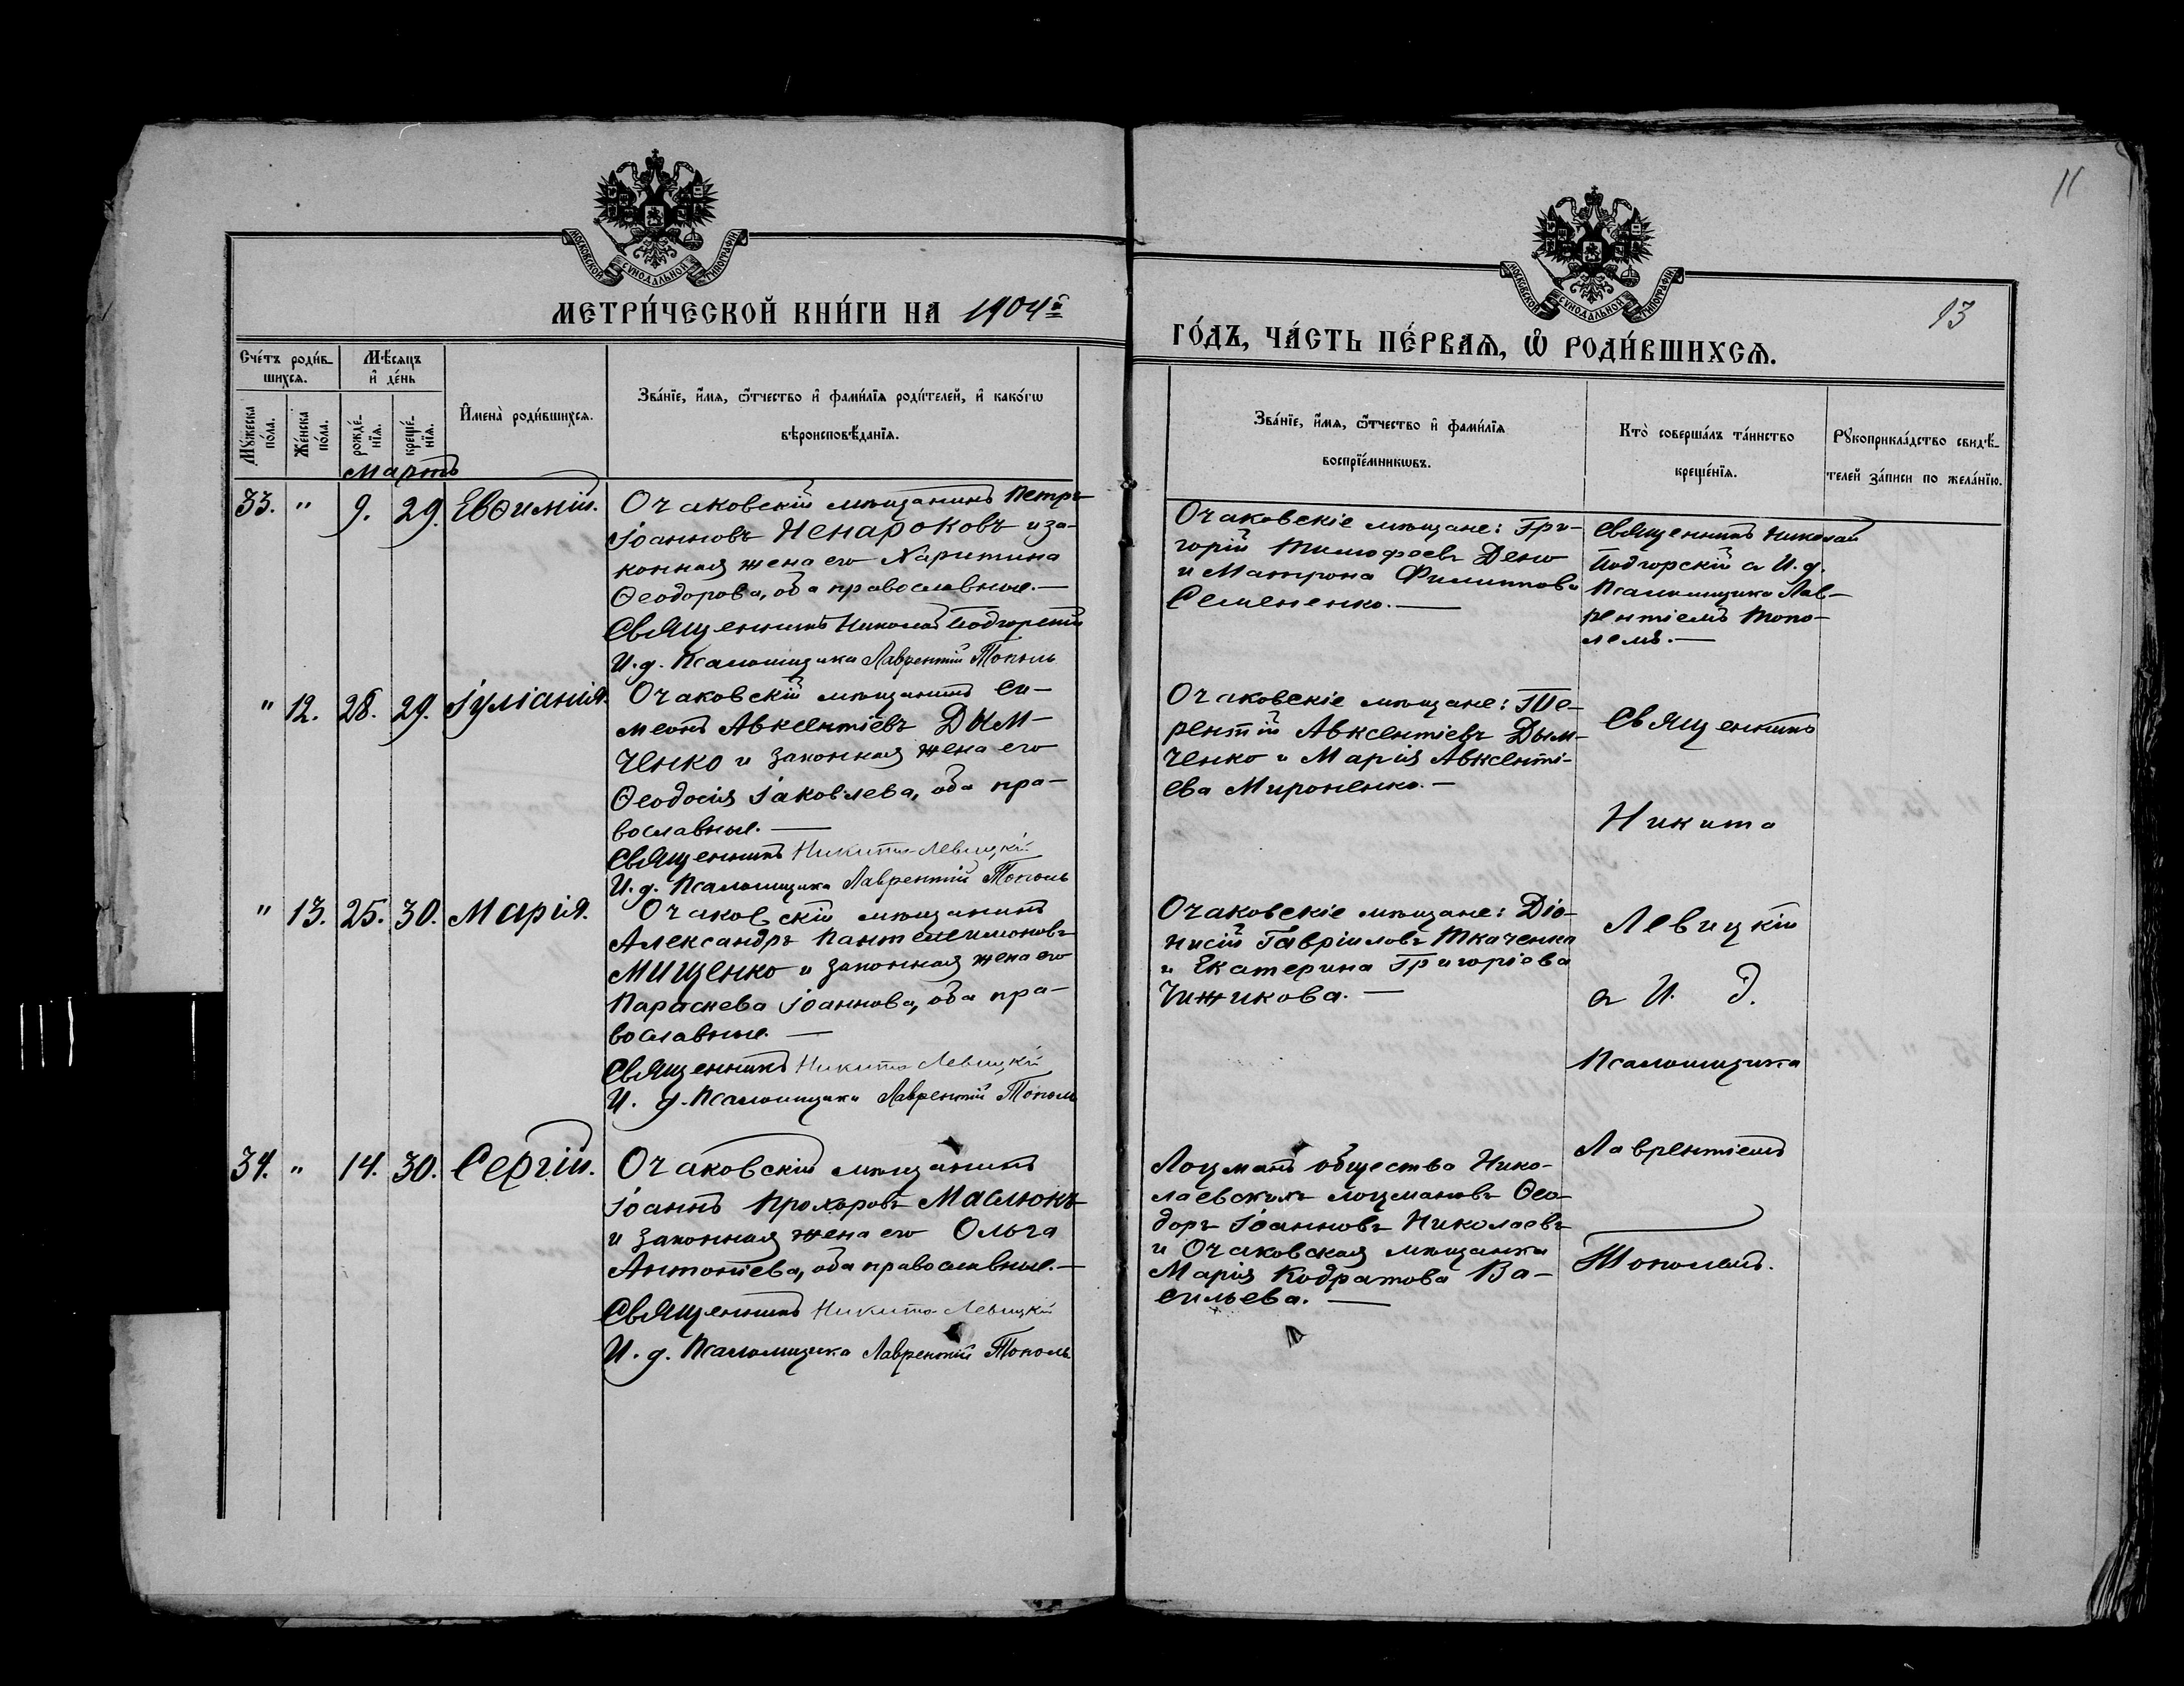 11
13
МОСКОВСКОЙ СѴНОДАЛЬНОЙ ТИПОГРАФІИ
МЕТРИ́ЧЕСКОЙ КНИ́ГИ НА 1904й
МОСКОВСКОЙ СѴНОДАЛЬНОЙ ТИПОГРАФІИ
ГО́ДЪ, ЧА́СТЬ ПЕ́РВАѦ, Ѽ РОДИ́ВШИХСѦ.
Сче́тъ роди́в-
шихсѧ.
Мѣ́сѧцъ
и҆ де́нь
Мꙋ́жеска
по́ла.
Же́нска
по́ла.
рожде́-
нїѧ.
креще́-
нїѧ.
И҆мена̀ роди́вшихсѧ.
Зва́нїе, и҆́мѧ, ѻ҆́тчество и҆ фами́лїѧ роди́телей, и҆ како́гѡ
вѣроисповѣ́данїѧ.
Зва́нїе, и҆́мѧ, ѻ҆́тчество и҆ фами́лїѧ
воспрїе́мникѡвъ.
Кто̀ соверша́лъ та́инство
креще́нїѧ.
Рꙋкоприкла́дство свидѣ́-
телей за́писи по жела́нїю.
Мартъ
33. " 9. 29. Евѳимій.
Очаковскій мѣщанинъ Петръ
Іоанновъ Ненароковъ и за-
конная жена его Харитина
Ѳеодорова, оба православные.—
Священникъ Николай Подгорскій
И. д. Псаломщика Лаврентій Тополь
Очаковскіе мѣщане: Гри-
горій Тимофеевъ Деню
и Матрона Филиппова
Семененко.—
Священникъ Николай
Подгорскій с И. д.
Псаломщика Лав-
рентіемъ Топо-
лемъ.—
" 12. 28. 29. Іуліанія.
Очаковскій мѣщанинъ Си-
меонъ Авксентіевъ Дым-
ченко и законная жена его
Ѳеодосія Іаковлева, оба пра-
вославные.—
Священникъ Никита Левицкій
И. д. Псаломщика Лаврентій Тополь
Очаковскіе мѣщане: Те-
рентій Авксентіевъ Дым-
ченко и Марія Авксенті-
ева Мироненко.—
Священникъ
Никита
" 13. 25. 30. Марія.
Очаковскій мѣщанинъ
Александръ Пантелеимоновъ
Мищенко и законная жена его
Параскева Іоаннова, оба пра-
вославные.—
Священникъ Никита Левицкій
И. д. Псаломщика Лаврентій Тополь
Очаковскіе мѣщане: Діо-
нисій Гавріиловъ Ткаченко
и Екатерина Григоріева
Чижикова.—
Левицкій
с И. д.
Псаломщика
34. " 14. 30. Сергій.
Очаковскій мѣщанинъ
Іоаннъ Прохоровъ Маслюкъ
и законная жена его Ольга
Антоніева, оба православные.—
Священникъ Никита Левицкій
И. д. Псаломщика Лаврентій Тополь
Лоцманъ общества Нико-
лаевскихъ лоцмановъ Ѳео-
доръ Іоанновъ Николаевъ
и Очаковская мѣщанка
Марія Кодратова Ва-
сильева.—
Лаврентіемъ
Тополемъ.